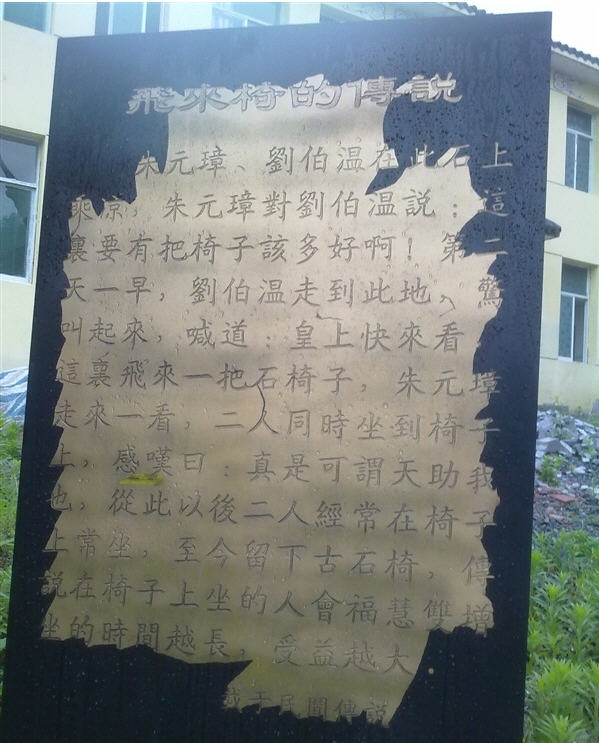 飛來椅的傳說
朱元璋、劉伯温在此石上
乘凉，朱元璋對劉伯温説：這
裏要有把椅子該多好啊！第二
天一早，劉伯温走到此地、驚
叫起來，喊道：皇上快來看，
這裏飛來一把石椅子，朱元璋
走來一看，二人同時坐到椅子
上，感嘆曰：真是可謂天助我
也，從此以後二人經常在椅子
上常坐，至今留下古石椅，傳
説在椅子上坐的人會福慧雙增
坐的時間越長，受益越大
載于民間傳説